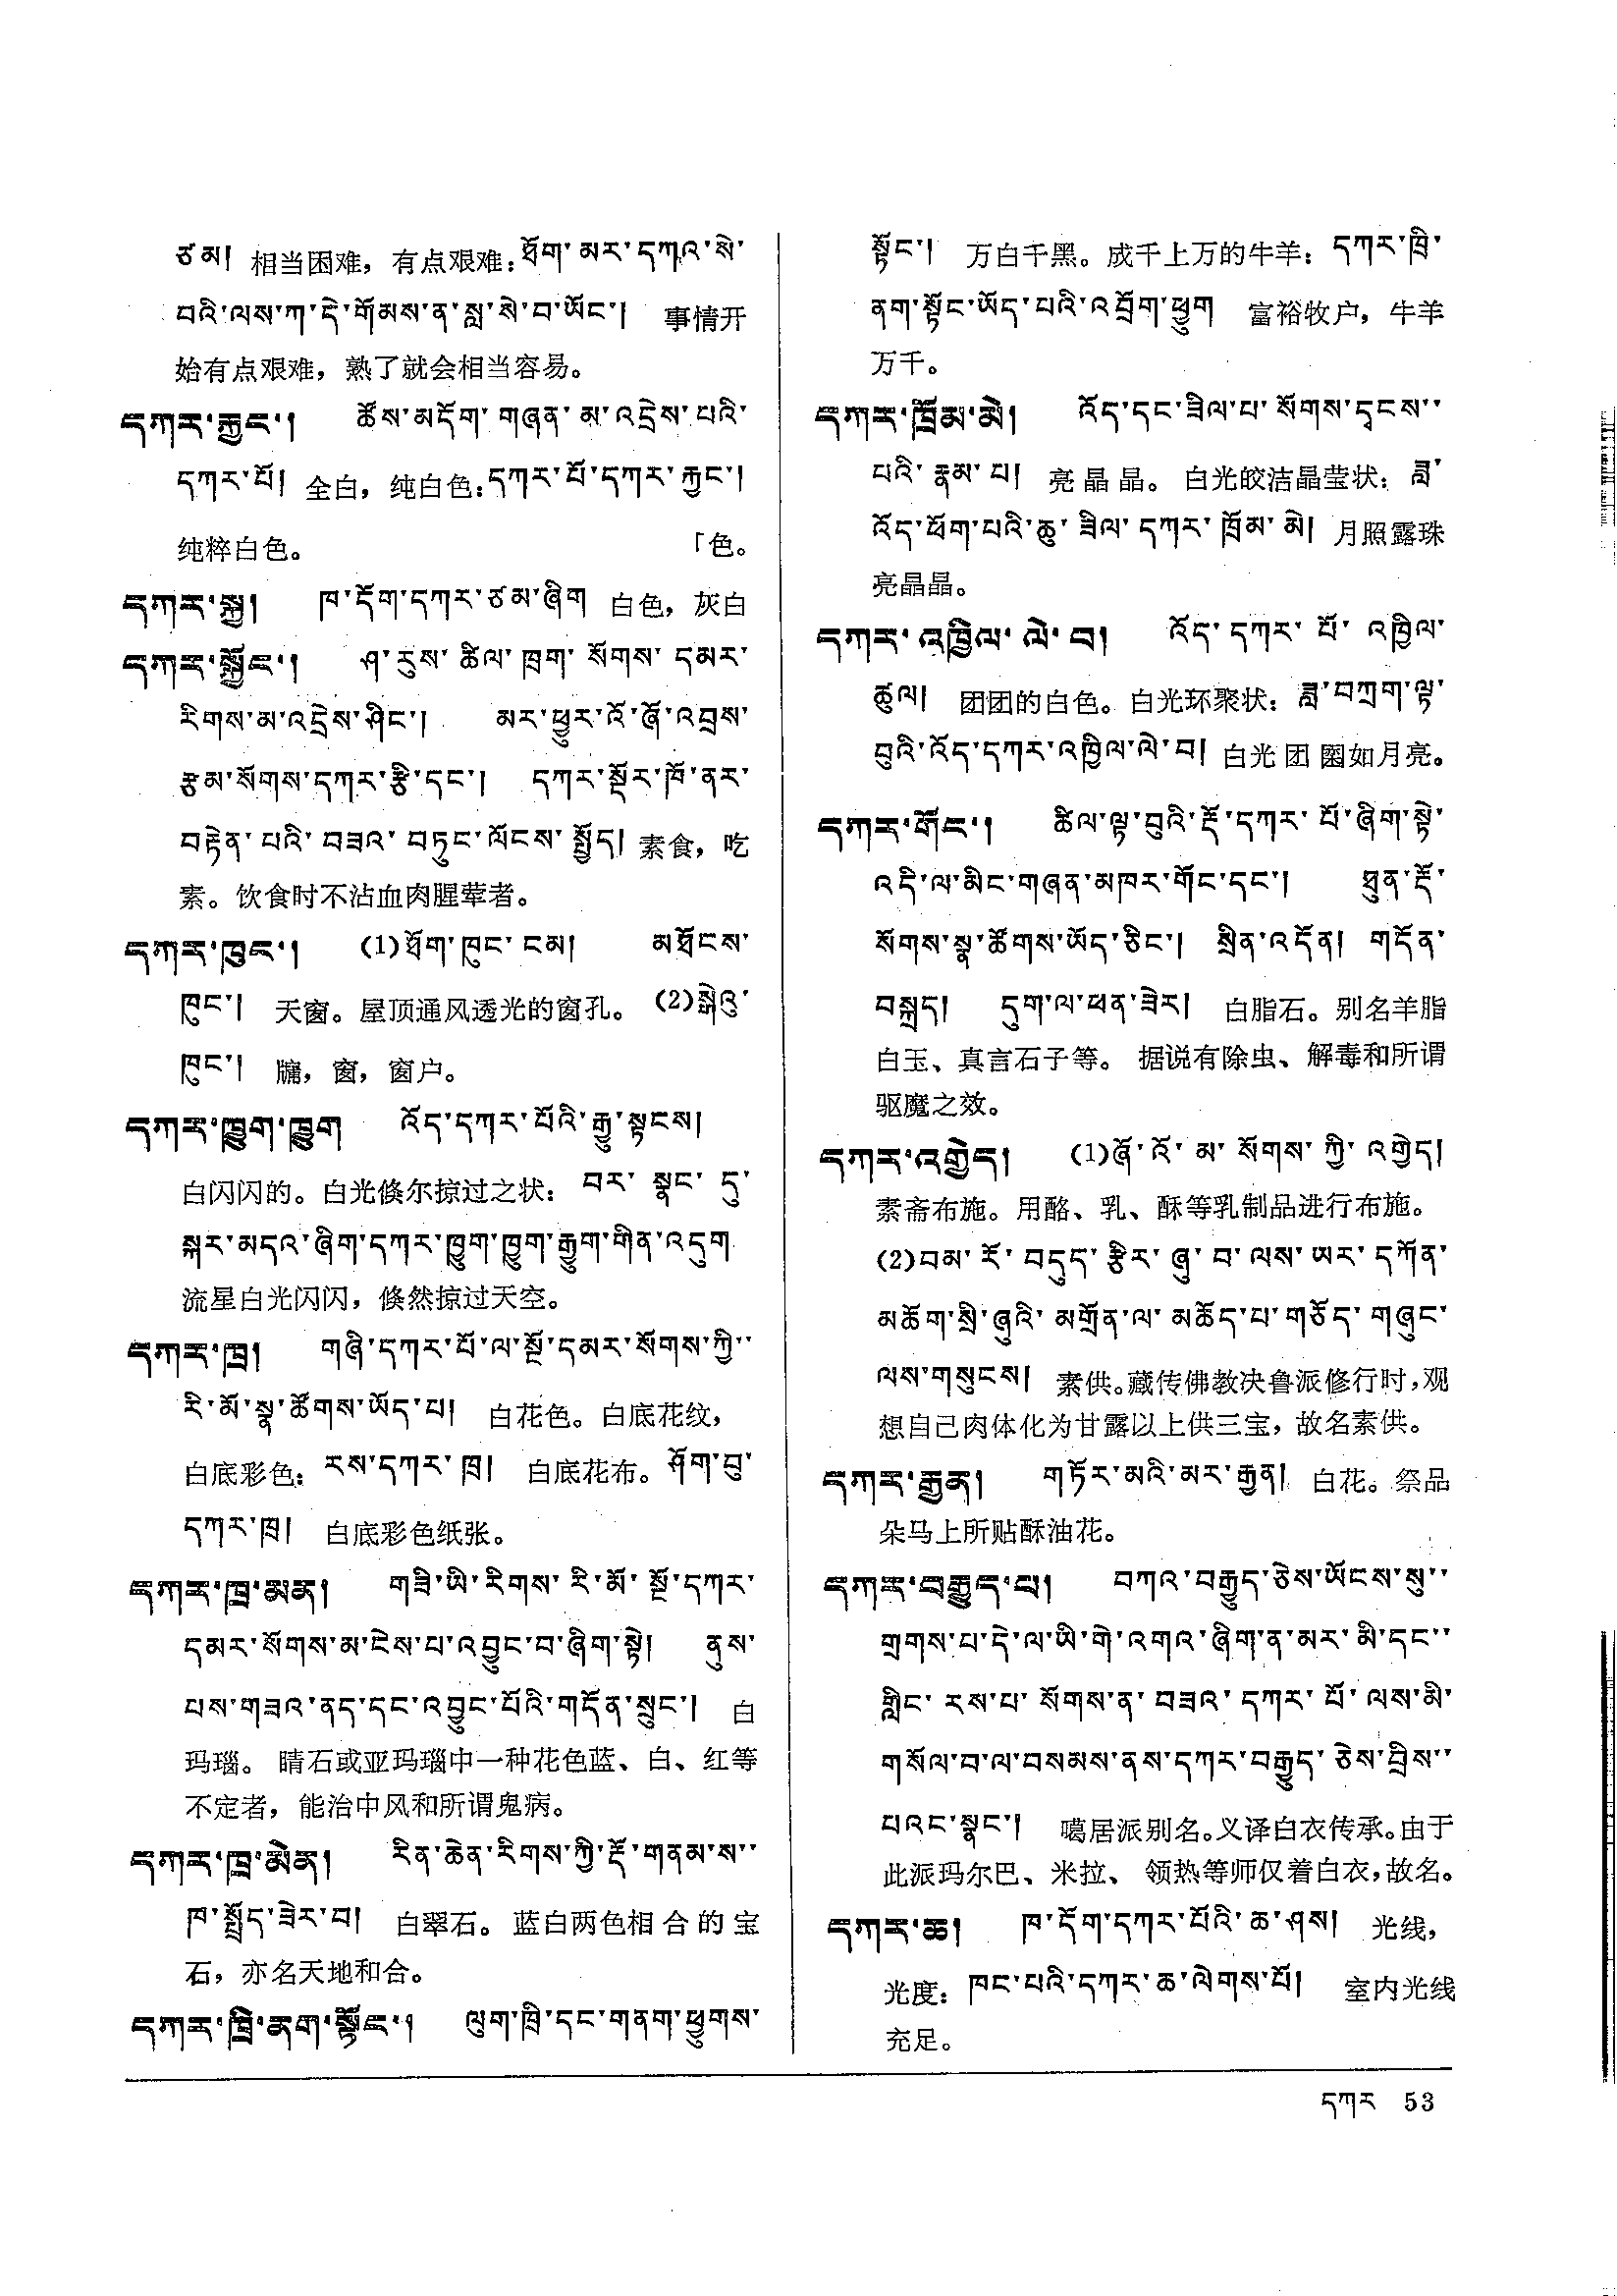 ཙམ། 相当困难，有点艰难：ཐོག་མར་དཀའ་སེ་
བའི་ལས་ཀ་དེ་གོམས་ན་སླ་སེ་བ་ཡོང་། 事情开
始有点艰难，熟了就会相当容易。
དཀར་རྐྱང་། ཚོས་མདོག་གཞན་མ་འདྲེས་པའི་
དཀར་པོ། 全白，纯白色：དཀར་པོ་དཀར་རྐྱང་།
纯粹白色。 「色。
དཀར་སྐྱ། ཁ་དོག་དཀར་ཙམ་ཞིག 白色，灰白
དཀར་སྐྱོང་། ཤ་རུས་ཚིལ་ཁྲག་སོགས་དམར་
རིགས་མ་འདྲེས་ཤིང་། མར་ཕྱུར་འོ་ཞོ་འབྲས་
རྩམ་སོགས་དཀར་རྩི་དང་། དཀར་སྔོར་ཁོ་ནར་
བརྟེན་པའི་བཟའ་བཏུང་ལོངས་སྤྱོད། 素食，吃
素。饮食时不沾血肉腥荤者。
དཀར་ཁུང་། (1)ཐོག་ཁུང་ངམ། མཐོངས་
ཁུང་། 天窗。屋顶通风透光的窗孔。(2)སྒེའུ་
ཁུང་། 牖，窗，窗户。
དཀར་ཁྱུག་ཁྱུག འོད་དཀར་པོའི་རྒྱུ་སྟངས།
白闪闪的。白光倏尔掠过之状：བར་སྣང་དུ་
སྐར་མདའ་ཞིག་དཀར་ཁྱུག་ཁྱུག་རྒྱུག་གིན་འདུག
流星白光闪闪，倏然掠过天空。
དཀར་ཁྲ། གཞི་དཀར་པོ་ལ་སྔོ་དམར་སོགས་ཀྱི་་
རི་མོ་སྣ་ཚོགས་ཡོད་པ། 白花色。白底花纹，
白底彩色：རས་དཀར་ཁྲ། 白底花布。ཤོག་བུ་
དཀར་ཁྲ། 白底彩色纸张。
དཀར་ཁྲ་མན། གཟི་ཡི་རིགས་རི་མོ་སྔོ་དཀར་
དམར་སོགས་མ་ངེས་པ་འབྱུང་བ་ཞིག་སྟེ། ནུས་
པས་གཟའ་ནད་དང་འབྱུང་པོའི་གདོན་སྲུང་། 白
玛瑙。睛石或亚玛瑙中一种花色蓝、白、红等
不定者，能治中风和所谓鬼病。
དཀར་ཁྲ་མེན། རིན་ཆེན་རིགས་ཀྱི་རྡོ་གནམ་ས་་
ཁ་སྤྲོད་ཟེར་བ། 白翠石。蓝白两色相合的宝
石，亦名天地和合。
དཀར་ཁྲི་ནག་སྟོང་། ལུག་ཁྲི་དང་གནག་ཕྱུགས་
སྟོང་། 万白千黑。成千上万的牛羊：དཀར་ཁྲི་
ནག་སྟོང་ཡོད་པའི་འབྲོག་ཕྱུག 富裕牧户，牛羊
万千。
དཀར་ཁྲོམ་མེ། འོད་དང་ཟིལ་པ་སོགས་དྭངས་་
པའི་རྣམ་པ། 亮晶晶。白光皎洁晶莹状：ཟླ་
འོད་ཕོག་པའི་ཆུ་ཟིལ་དཀར་ཁྲོམ་མེ། 月照露珠
亮晶晶。
དཀར་འཁྱིལ་ལེ་བ། འོད་དཀར་པོ་འཁྱིལ་
ཚུལ། 团团的白色。白光环聚状：ཟླ་བཀྲག་ལྟ་
བུའི་འོད་དཀར་འཁྱིལ་ལེ་བ། 白光团圞如月亮。
དཀར་གོང་། ཚིལ་ལྟ་བུའི་རྡོ་དཀར་པོ་ཞིག་སྟེ་
འདི་ལ་མིང་གཞན་མཁར་གོང་དང་། ཐུན་རྡོ་
སོགས་སྣ་ཚོགས་ཡོད་ཅིང་། སྲིན་འདོན། གདོན་
བསྐྲད། དུག་ལ་ཕན་ཟེར། 白脂石。别名羊脂
白玉、真言石子等。据说有除虫、解毒和所谓
驱魔之效。
དཀར་འགྱེད། (1)ཞོ་འོ་མ་སོགས་ཀྱི་འགྱེད།
素斋布施。用酪、乳、酥等乳制品进行布施。
(2)བམ་རོ་བདུད་རྩིར་ཞུ་བ་ལས་ཡར་དཀོན་
མཆོག་སྲི་ཞུའི་མགྲོན་ལ་མཆོད་པ་གཅོད་གཞུང་
ལས་གསུངས། 素供。藏传佛教决鲁派修行时，观
想自己肉体化为甘露以上供三宝，故名素供。
དཀར་རྒྱན། གཏོར་མའི་མར་རྒྱན། 白花。祭品
朵马上所贴酥油花。
དཀར་བརྒྱུད་པ། བཀའ་བརྒྱུད་ཅེས་ཡོངས་སུ་་
གྲགས་པ་དེ་ལ་ཡི་གེ་འགའ་ཞིག་ན་མར་མི་དང་་
གླིང་རས་པ་སོགས་ན་བཟའ་དཀར་པོ་ལས་མི་
གསོལ་བ་ལ་བསམས་ནས་དཀར་བརྒྱུད་ཅེས་བྲིས་་
པའང་སྣང་། 噶居派别名。义译白衣传承。由于
此派玛尔巴、米拉、领热等师仅着白衣，故名。
དཀར་ཆ། ཁ་དོག་དཀར་པོའི་ཆ་ཤས། 光线，
光度：ཁང་པའི་དཀར་ཆ་ལེགས་པོ། 室内光线
充足。
དཀར 53